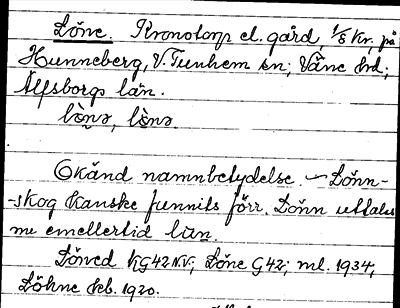 Löne. Kronotorp el. gård, 1/8 kr, på
Hunneberg, V. Tunhem sn; Väne hrd;
Älfsborgs län.
lö̀nə, lö̀nə.
Okänd namnbetydelse. — Lönn-
-skog kanske funnits förr. Lönn uttalas
nu emellertid
Löved KG42 NV; Löne G42; ml. 1934,
Löhne feb. 1920.